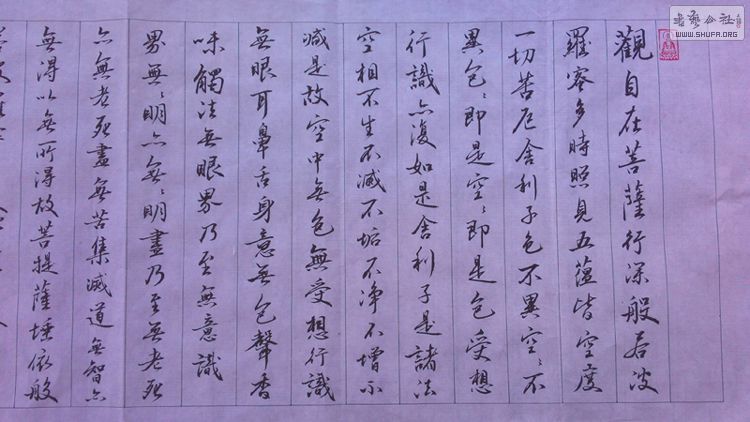 觀自在菩薩行深般若波
羅蜜多時照見五蘊皆空度
一切苦厄舍利子色不異空〻不
異色〻即是空〻即是色受想
行識亦復如是舍利子是諸法
空相不生不滅不垢不净不增不
減是故空中無色無受想行識
無眼耳鼻舌身意無色聲香
味觸法無眼界乃至無意識
界無〻明亦無〻明盡乃至無老死
亦無老死盡無苦集滅道無智亦
無得以無所得故菩提薩埵依般
书艺公社
WWW.SHUFA.ORG